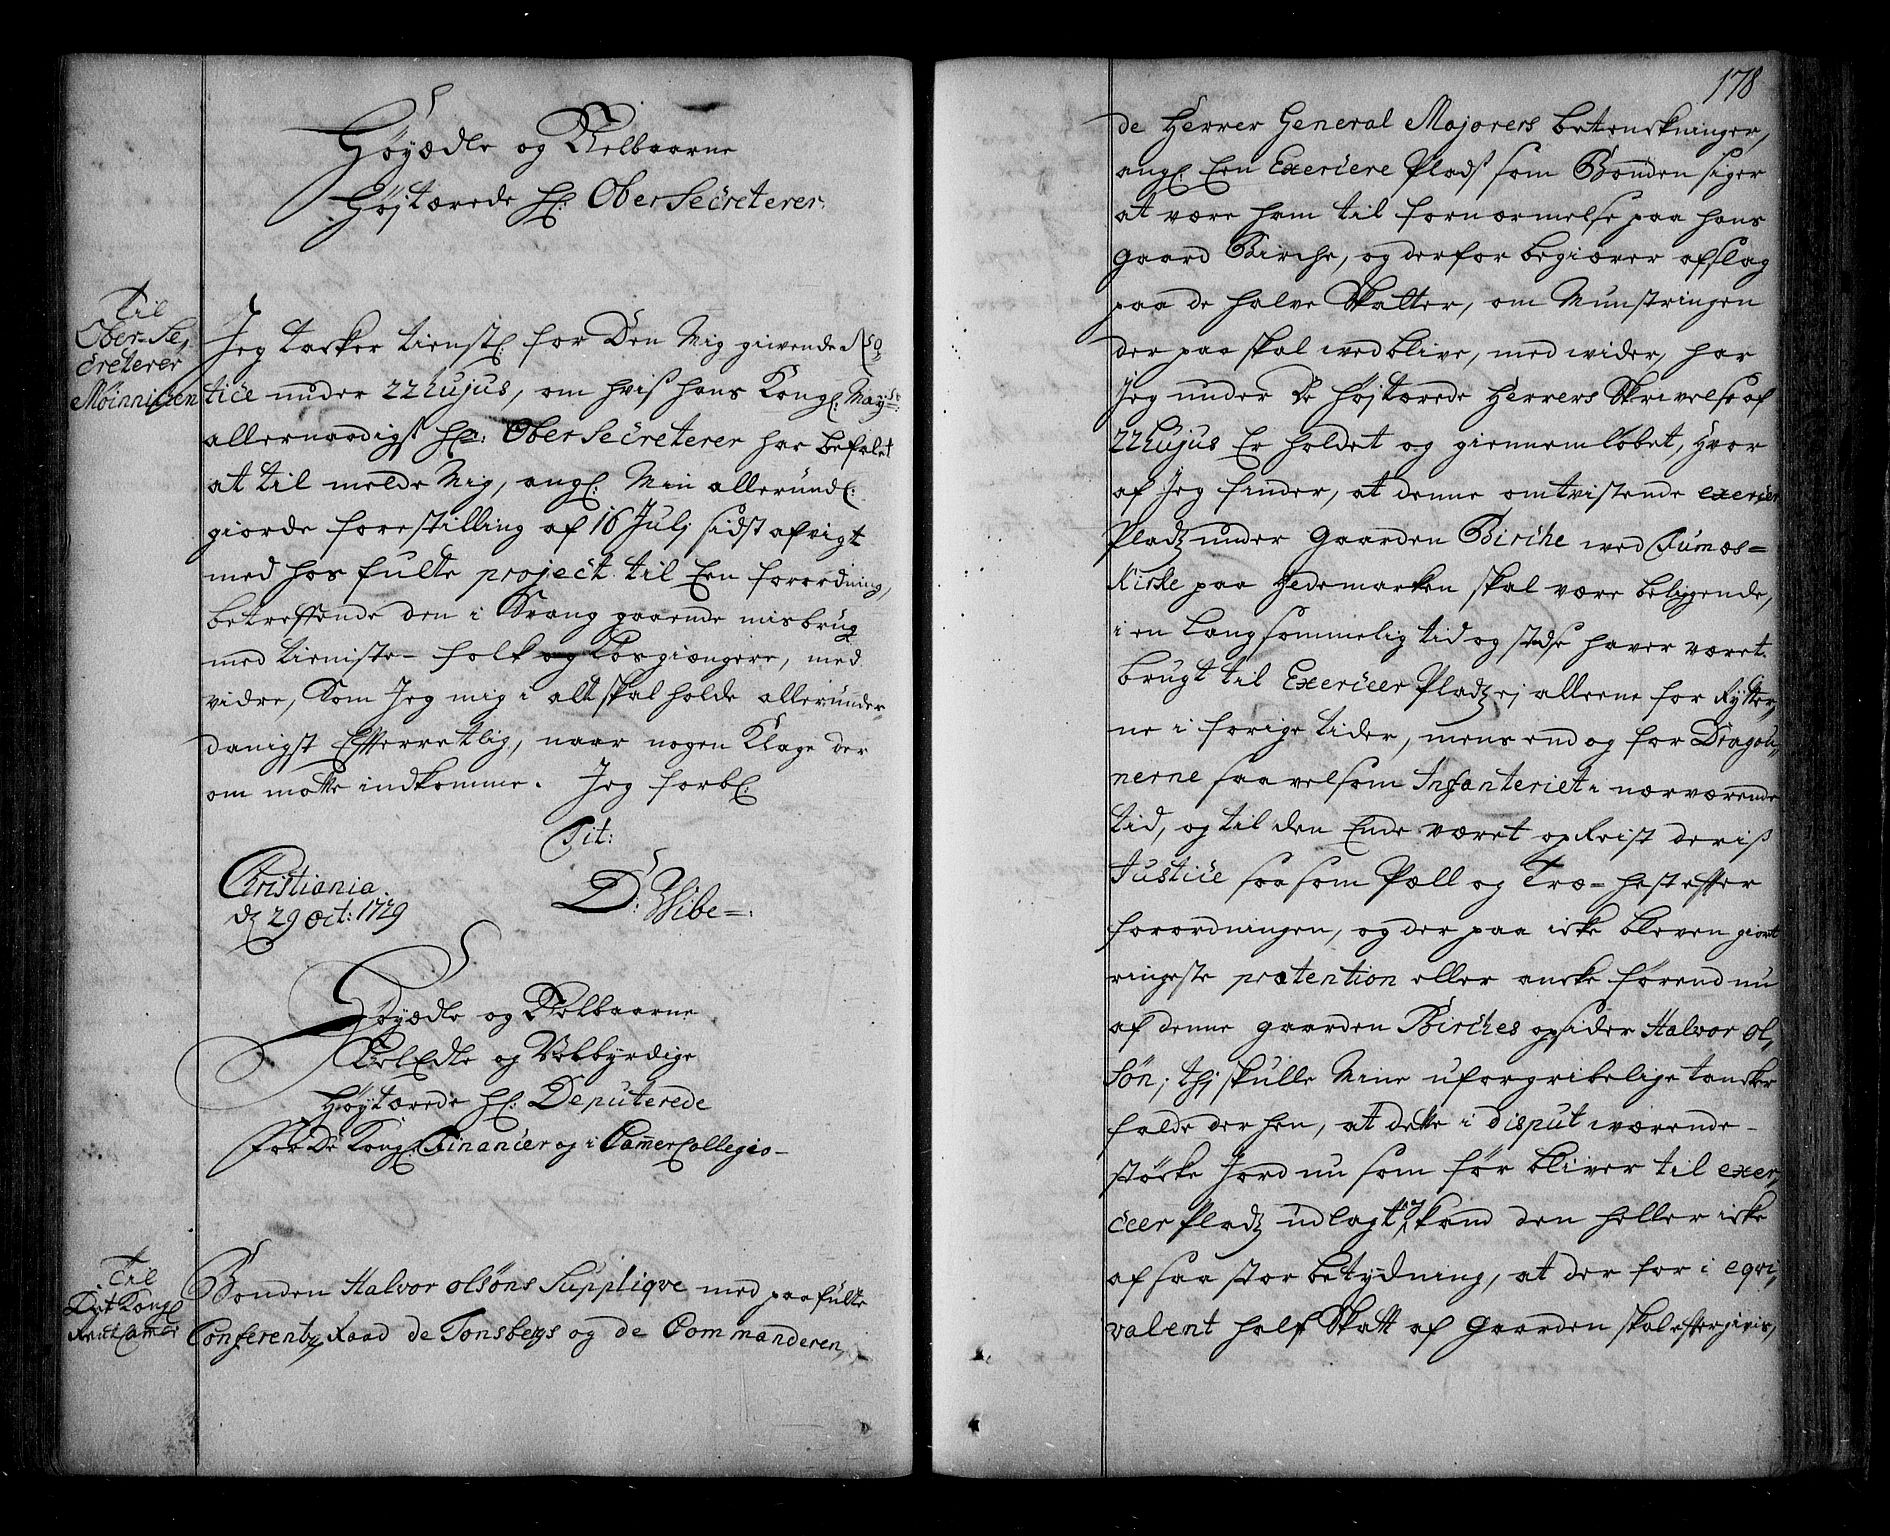 Høyædle og Velbaarne
Højtærede H: Ober Secreterer.
Til
Ober-Se,
creterer
Møinnichen
Jeg tacker tienstl: for Den Mig givende No,
tice under 22 hujus, om hviß hans Kongl: May:st
allernaadigst Hr: Ober Secreterer har befalet
at til melde Mig, angl: Min allerundl:
giorde forestilling af 16 Julj sidst afvigt
med hos fulte project til Een forordning,
betreffende den i Svang gaaende misbrug
med tieniste-folk og Løsgiængere, med
vidre, Som Jeg mig i alt skal holde allerunder,
danigst Efterretlig, naar nogen Klage der
om motte indkomme. Jeg forbl:
Tit:
Christiania
d 29 Oct: 1729
D: Vibe
Høyædle og Velbaarne
VelEdle og Velbyrdige
Høytærede H: Deputerede
for De Kongl: Financier og i Cammer Collegio-
Til
Det Kongl
Rente Camer
Bonden Halvor Olsøns Supplique med paafulte
Conferentz Raad de Tonsbergs og de Commanderen,
178
de Herrer General Majorers betenckninger,
angl: Een Exercere Pladß som Bonden siger
at være ham til fornærmelse paa hans
gaard Birche, og derfor begiærer afslag
paa de halve Skatter, om Munstringen
der paa skal ved blive, med vider, har
Jeg under De højtærede Herrers Skrivelse af
22 hujus Er holdet og giennemløbet, hvor
af Jeg finder, at denne omtvistende exercer
Pladz under Gaarden Birche ved Rumøs-
Kirke paa Hedemarken skal være beliggende,
i en langsommelig tid og stedse haver været
brugt til Exerceer Pladz ej alleene for Rytter,
ne i forige tider, mens end og for Dragou,
nerne saavelsom Infanteriet i nærværende
tid, og til den Ende været opReist deris
Justice saasom Pæll og Træ-hest effter
forordningen, og der paa icke bleven giort
ringeste prætention eller ancke førend nu
af denne gaarden Birches opsider Halvor Ol,
søn; thj skulle Mine uforgribelige tancker
falde der hen, at dette i disput værende-
støcke Jord nu som før bliver til exer,
ceer Pladz udlagt, kand den heller icke
af saa stor betydning, at der for i eqvi,
valent half Skatt af Gaarden skal eftergivis,